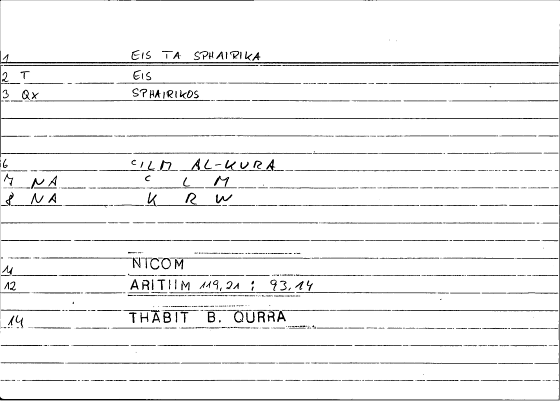 1 EIS TA SPHAIRIKA
2 T EIS
3 Qx SPHAIRIKOS
6 ᶜILM AL-KURA
7 NA ᶜ L M
8 NA K R W
11 NICOM
12 ARITIIM 119,21 ; 93,14
14 THĀBIT B. QURRA